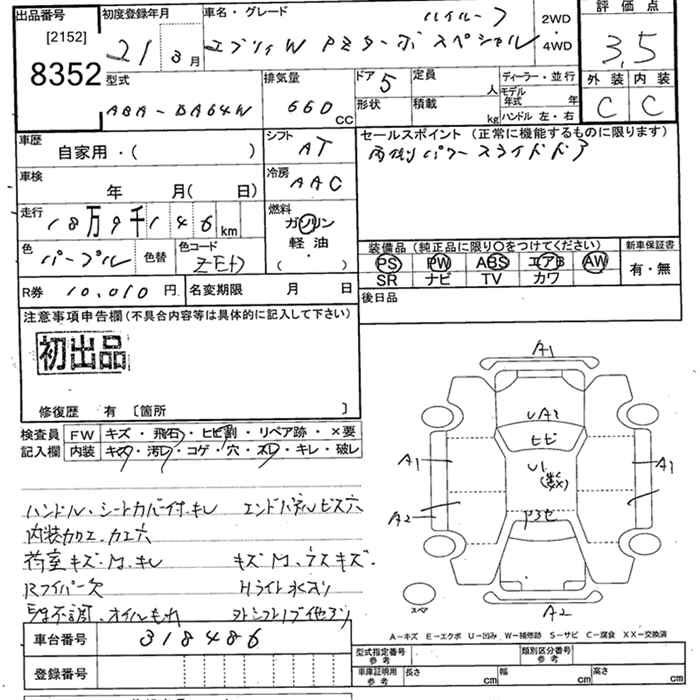 出品番号 [2152] 8352
初度登録年月 21年 3月
車名・グレード ハイルーフ エブリィW PZターボスペシャル
2WD・4WD
評価点 3.5
外装 C 内装 C
型式 ABA-DA64W
排気量 660 CC
ドア 5 形状
定員 人 積載 kg
ディーラー・並行
モデル年式 年
ハンドル 左・右
車歴 自家用・( )
シフト AT
車検 年 月( 日)
冷房 AAC
走行 18万9千146 km
燃料 ガソリン 軽油 ・ ( )
色 パープル 色替 色コード
R券 10,010 円 名変期限 月 日
セールスポイント (正常に機能するものに限ります)
両側パワースライドドア
装備品 (純正品に限り○をつけてください) 新車保証書
PS PW ABS エアB AW 有・無
SR ナビ TV カワ
後日品
注意事項申告欄 (不具合内容等は具体的に記入して下さい)
初出品
修復歴 有 〔箇所 〕
検査員 FW キズ・飛石・ヒビ割・リペア跡・×要
記入欄 内装 キズ・汚レ・コゲ・穴・スレ・キレ・破レ
ハンドル・シートカバー付キレ エンドパネルビス穴
内装カケ
荷室キズ・M・キレ キズM、ラスキズ、
Rワイパー欠 Hライト
オイルもれ
A1
UA2
ヒビ
A1
U1
A1
A2
A2
スペア
A-キズ E-エクボ U-凹み W-補修跡 S-サビ C-腐食 XX-交換済
車台番号 318486
登録番号
型式指定番号 参考 類別区分番号 参考
車庫証明用 参考 長さ cm 幅 cm 高さ cm